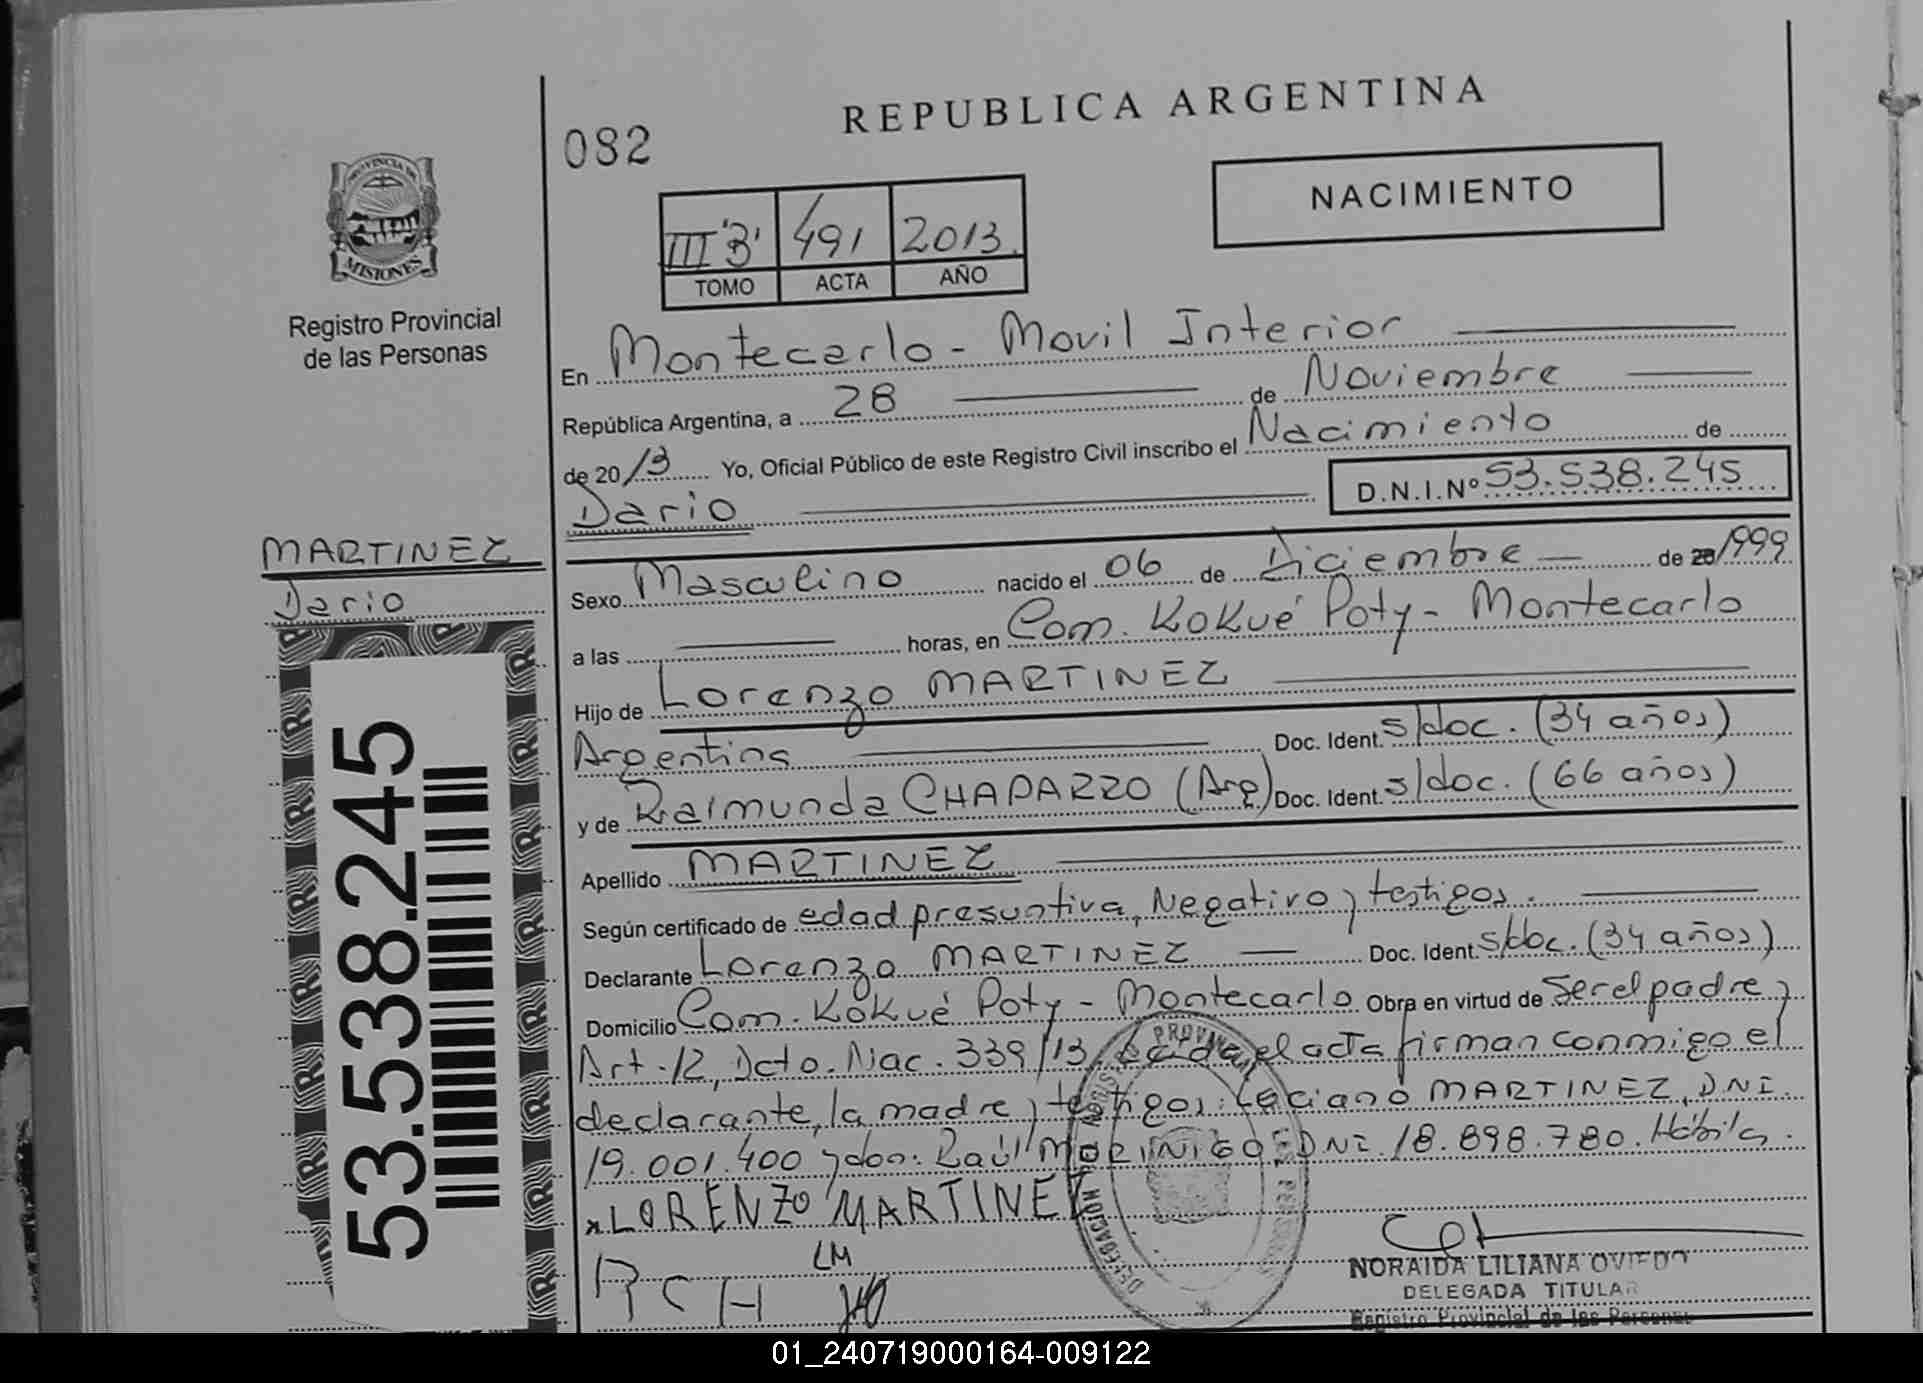 REPUBLICA ARGENTINA
082
NACIMIENTO
PROVINCIA DE
MISIONES
Registro Provincial
de las Personas
III "B" 491 2013.
TOMO ACTA AÑO
En Montecarlo - Movil Interior
República Argentina, a 28 de Noviembre
de 2013 Yo, Oficial Público de este Registro Civil inscribo el Nacimiento de
Dario D.N.I.Nº 53.538.245
MARTINEZ
Dario
53.538.245
Sexo Masculino nacido el 06 de Diciembre de 20 1999
a las horas, en Com. Kokué Poty - Montecarlo
Hijo de Lorenzo MARTINEZ
Argentina Doc. Ident. s/doc. (34 años)
y de Raimunda CHAPARRO (Arg) Doc. Ident. s/doc. (66 años)
Apellido MARTINEZ
Según certificado de edad presuntiva, Negativo y testigos.
Declarante Lorenzo MARTINEZ Doc. Ident. s/doc. (34 años)
Domicilio Com. Kokué Poty - Montecarlo Obra en virtud de Ser el padre y
Art. 12, Dcto. Nac. 339/13. Leída el acta firman conmigo el
declarante, la madre y testigos: MARTINEZ, DNI.
19.001.400 y don: Raúl MORINIGO, DNI. 18.898.780. Hábiles.
x LORENZO MARTINEZ
R C H LM
NORAIDA LILIANA OVIEDO
DELEGADA TITULAR
Registro Provincial de las Personas
01_240719000164-009122